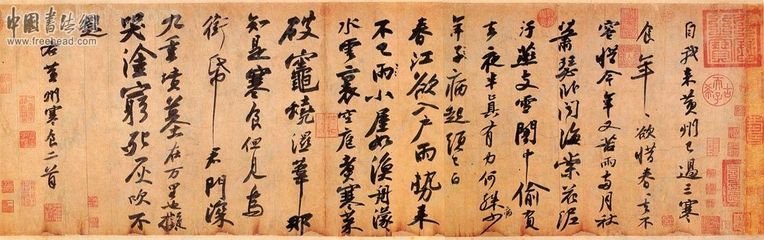 中国书法网
www.freehead.com
自我來黃州已過三寒
食年〻欲惜春〻去不
容惜今年又苦雨兩月秋
蕭瑟卧聞海棠花泥
汙燕支雪闇中偷負
去夜半真有力何殊病少
年子病起頭已白
春江欲入户雨勢來
不已雨小屋如漁舟濛〻
水雲裏空庖煮寒菜
破竈燒濕葦那
知是寒食但見烏
銜帋君門深
九重墳墓在万里也擬
哭塗窮死灰吹不
起
右黃州寒食二首